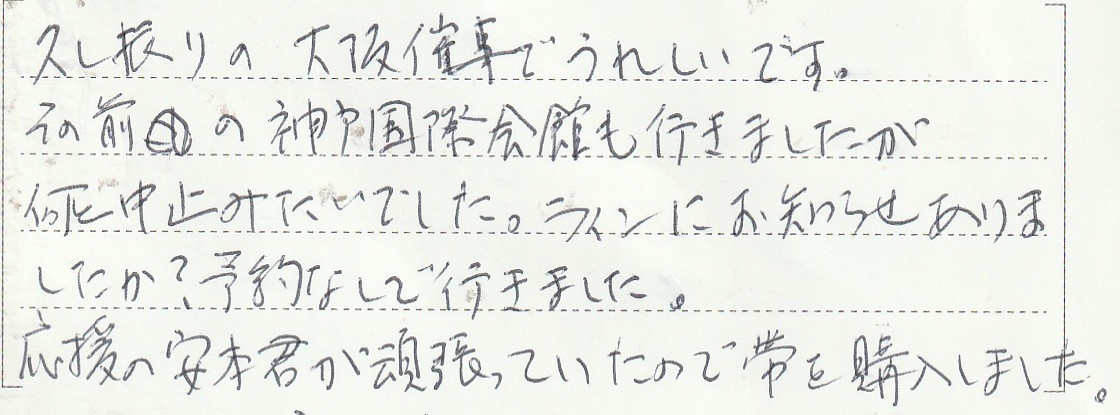 久し振りの大阪催事でうれしいです。
その前の神戸国際会館も行きましたが
何と中止みたいでした。ラインにお知らせありま
したか?予約なしで行きました。
応援の安本君が頑張っていたので帯を購入しました。